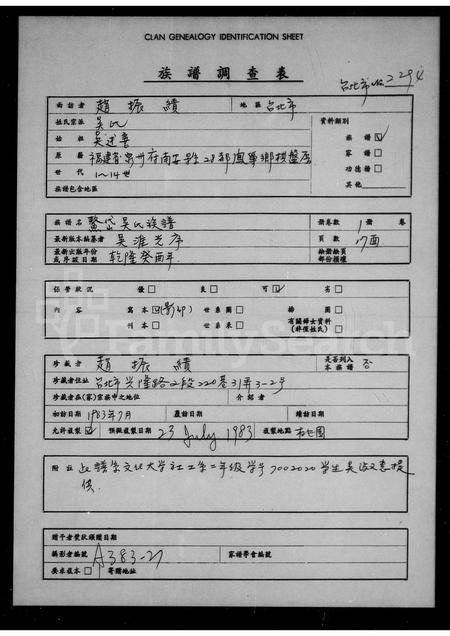 CLAN GENEALOGY IDENTIFICATION SHEET
族譜調查表
台北市No2294
面訪者 趙振績 地區 台北市
姓氏宗派 吳氏 資料類別
始祖 吳述喜 族譜☑
原籍 福建省泉州府南安 28都 鄉 家譜□
世代 1~14世 功德譜□
族譜包含地區 其他
族譜名 鰲岱吳氏族譜 冊卷數 1冊卷
最新版本編纂者 吳淮光序 頁數 17面
最新出版年份或序跋日期 乾隆癸酉年 缺冊缺頁部份損壞
保管狀況 優□ 良□ 可☑ 劣□
內容 寫本☑(影印) 世系圖□ 插圖□
刊本□ 世系表□ 有關婦女資料(非僅姓氏)□
FamilySearch
珍藏者 趙振績 是否列入本族譜 否
珍藏者住址 台北市興隆路2段220巷31弄3-2号
珍藏者在(家)宗族中之地位 介紹者
初訪日期 1983年7月 覆訪日期 續訪日期
允許複製☑ 預擬複製日期 23 July 1983 複製地點
附註 此譜係文化大學社工系二年級學號7002020學生吳淑惠提供.
贈予者獎狀頒贈日期
攝影者編號 A383-27 家譜學會編號
要求放本□ 寄贈地址